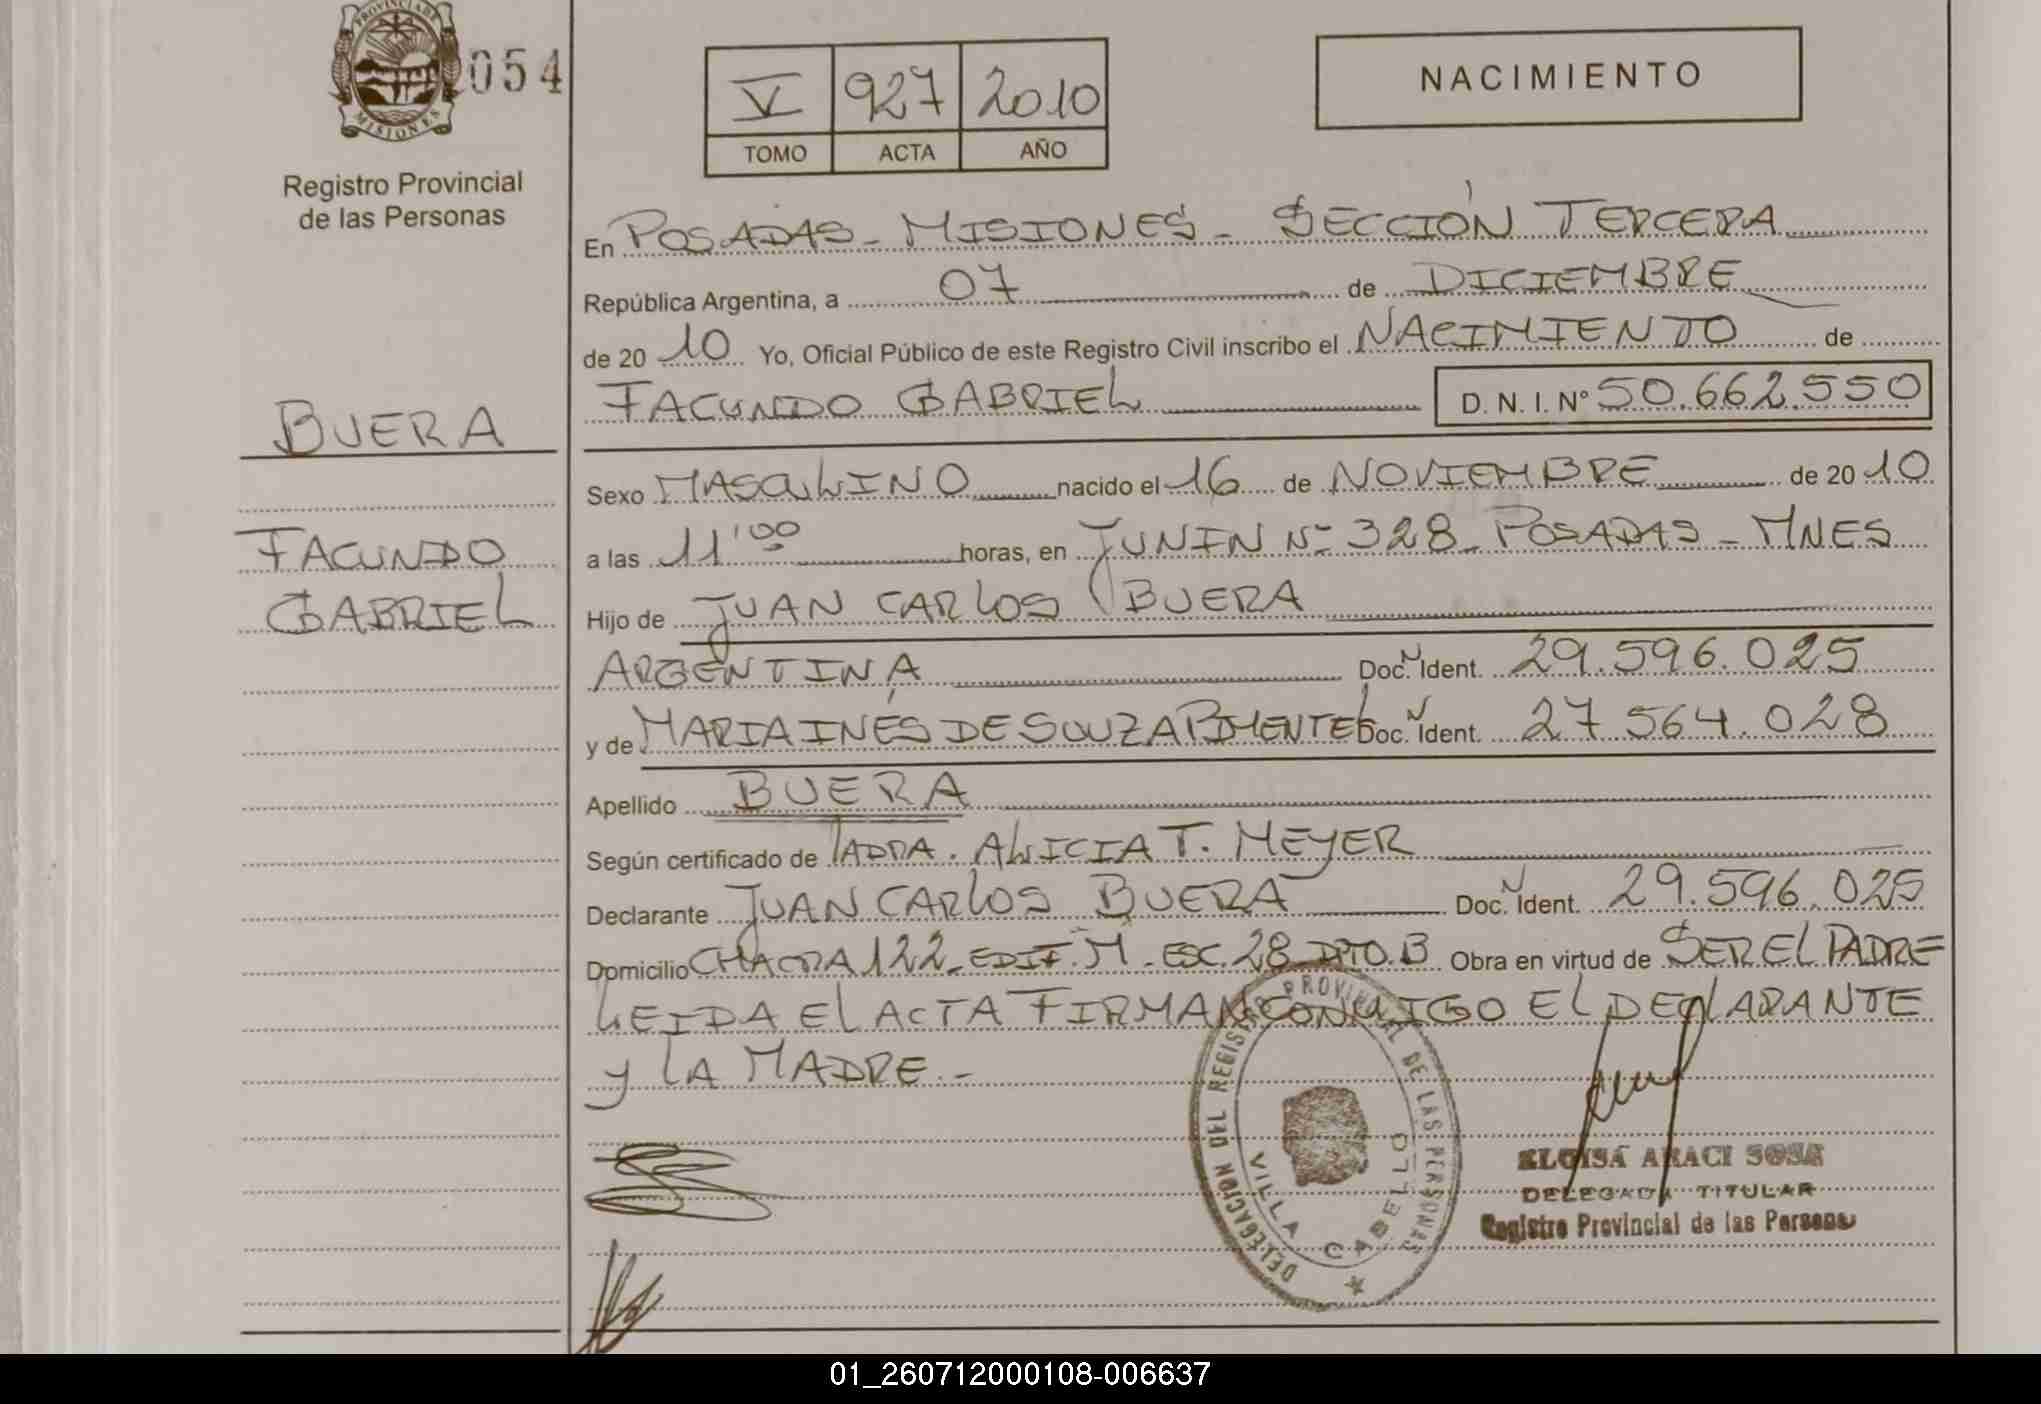 PROVINCIA DE
MISIONES
054
Registro Provincial
de las Personas
BUERA
FACUNDO
GABRIEL
V 927 2010
TOMO ACTA AÑO
NACIMIENTO
En POSADAS - MISIONES - SECCIÓN TERCERA
República Argentina, a 07 de DICIEMBRE
de 20 10 Yo, Oficial Público de este Registro Civil inscribo el NACIMIENTO de
FACUNDO GABRIEL D. N. I. N° 50.662.550
Sexo MASCULINO nacido el 16 de NOVIEMBRE de 20 10
a las 11'00 horas, en JUNIN Nº 328 - POSADAS - MNES
Hijo de JUAN CARLOS BUERA
ARGENTINA Doc. Ident. 29.596.025
y de MARIA INÉS DE SOUZA PIMENTEL Doc. Ident. 27.564.028
Apellido BUERA
Según certificado de ALICIA T. MEYER
Declarante JUAN CARLOS BUERA Doc. Ident. 29.596.025
Domicilio CHACRA 122 - EDIF. M - ESC. 28 DPTO. B Obra en virtud de SER EL PADRE
LEIDA EL ACTA FIRMAN CONMIGO EL DECLARANTE
Y LA MADRE.-
DELEGACIÓN DEL REGISTRO PROVINCIAL DE LAS PERSONAS
VILLA CABELLO
ELOISA ARACI SOSA
DELEGADA TITULAR
Registro Provincial de las Personas
01_260712000108-006637